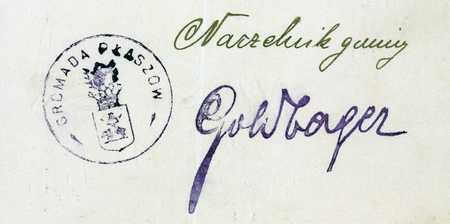 GROMADA PŁASZÓW
Naczelnik gminy
Goldberger